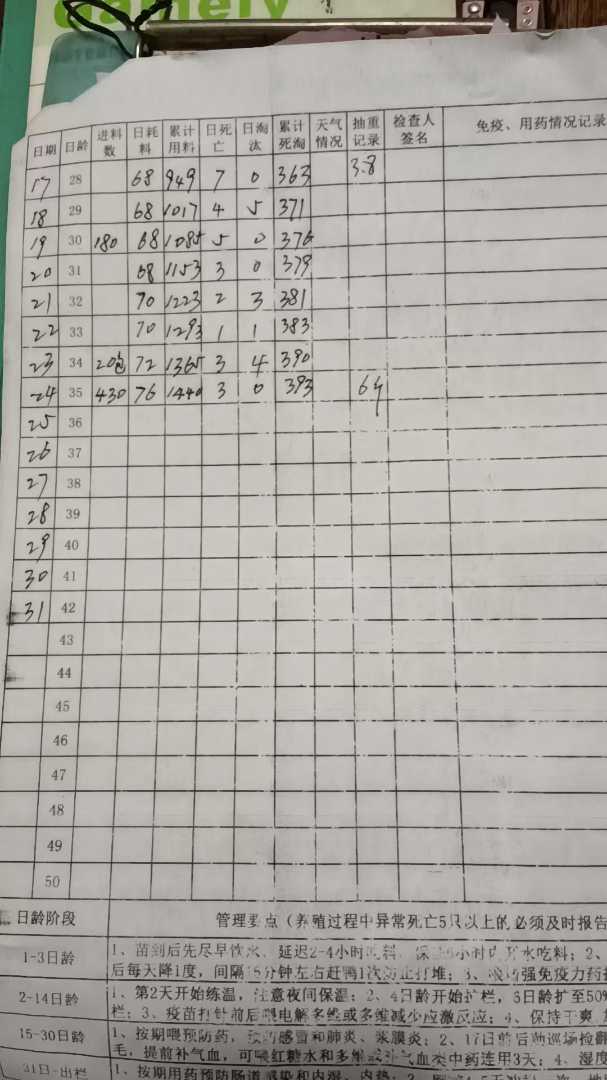 日期 日龄 进料数 日耗料 累计用料 日死亡 日淘汰 累计死淘 天气情况 抽重记录 检查人签名 免疫、用药情况记录
17 28 68 949 7 0 363 3.8
18 29 68 1017 4 5 371
19 30 180 68 1085 5 0 376
20 31 68 1153 3 0 379
21 32 70 1223 2 3 381
22 33 70 1293 1 1 383
23 34 20包 72 1365 3 4 390
24 35 430 76 1440 3 0 393
25 36
26 37
27 38
28 39
29 40
30 41
31 42
43
44
45
46
47
48
49
50
日龄阶段 管理要点（养殖过程中异常死亡5只以上的必须及时报告
1-3日龄 1、苗到后先尽早饮水、延迟2-4小时
后每天降1度，间隔15分钟左右赶鸭1次防止打堆；3、
2-14日龄 1、第2天开始练温，注意夜间保温；2、4日龄开始扩栏，
栏；3、疫苗打针前后喂电解多维或多维减少应激反应；4、保持干爽
15-30日龄 1、按期喂预防药，预防感冒和肺炎、浆膜炎；2、17日前后
毛，提前补气血，可喂红糖水和多维或补气血类中药连用3天；4、湿度
31日-出栏 1、按期用药预防肠道感染和内湿、内热；2、